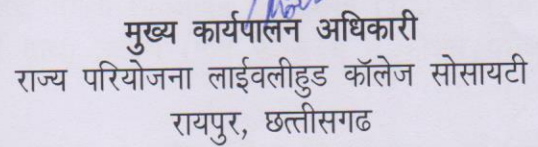 मुख्य कार्यपालन अधिकारी
राज्य परियोजना लाईवलीहुड कॉलेज सोसायटी
रायपुर, छत्तीसगढ